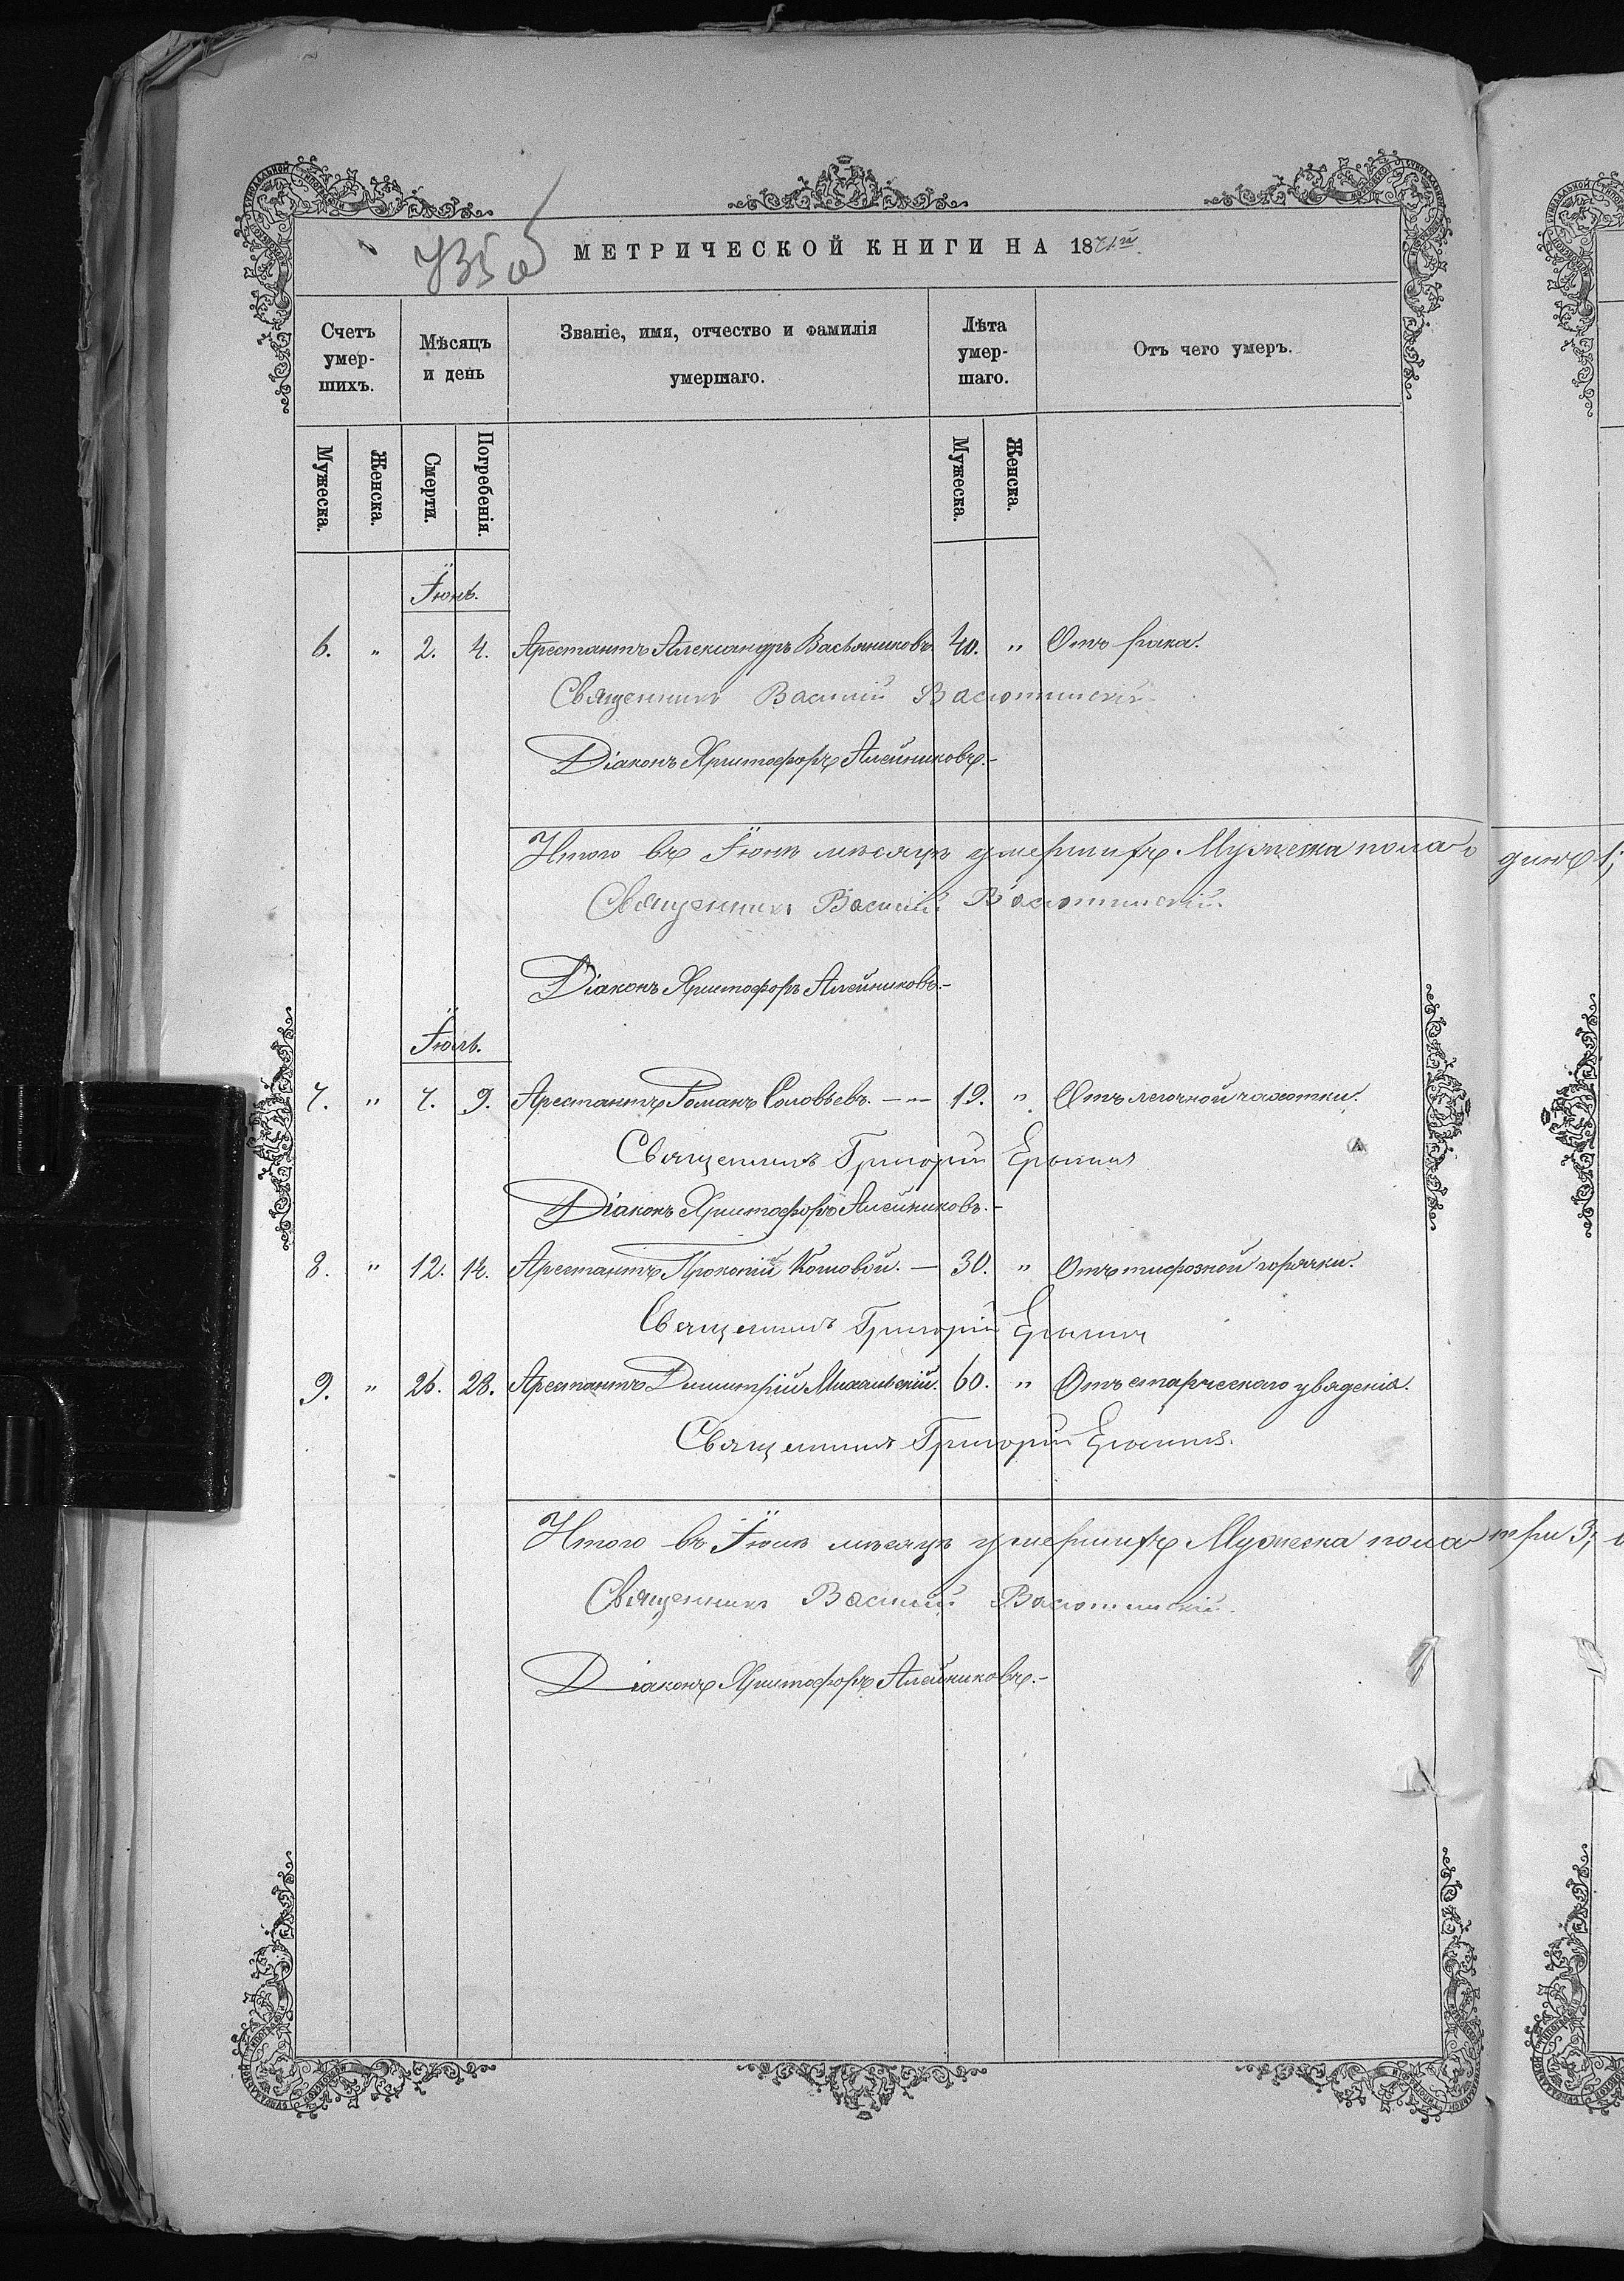 МЕТРИЧЕСКОЙ КНИГИ НА 1871й
Счетъ умер-шихъ. Мѣсяцъ и день Званіе, имя, отчество и фамилія умершаго. Лѣта умер-шаго. Отъ чего умеръ.
Мужеска. Женска. Смерти. Погребенія. Мужеска. Женска.
Іюнь.
6. " 2. 4. Арестантъ Александръ Васьяниковъ 40. " Отъ рака.
Священникъ Василій Васютинскій
Діаконъ Христофоръ Алейниковъ.-
Итого въ Іюнѣ мѣсяцѣ умершихъ Мужеска пола одинъ 1;
Священникъ Василій Васютинскій.
Діаконъ Христофоръ Алейниковъ.-
Іюль.
7. " 7. 9. Арестантъ Романъ Соловьевъ. — 19. " Отъ легочной чахотки.
Священникъ Григорій
Діаконъ Христофоръ Алейниковъ.-
8. " 12. 14. Арестантъ Прокопій Кошовой. — 30. " Отъ тифозной горячки.
Священникъ Григорій
9. " 26. 28. Арестантъ Димитрій Михальскій. 60. " Отъ старческаго увяденія.
Священникъ Григорій
Итого въ Іюлѣ мѣсяцѣ умершихъ Мужеска пола три 3;
Священникъ Василій Васютинскій.
Діаконъ Христофоръ Алейниковъ.-